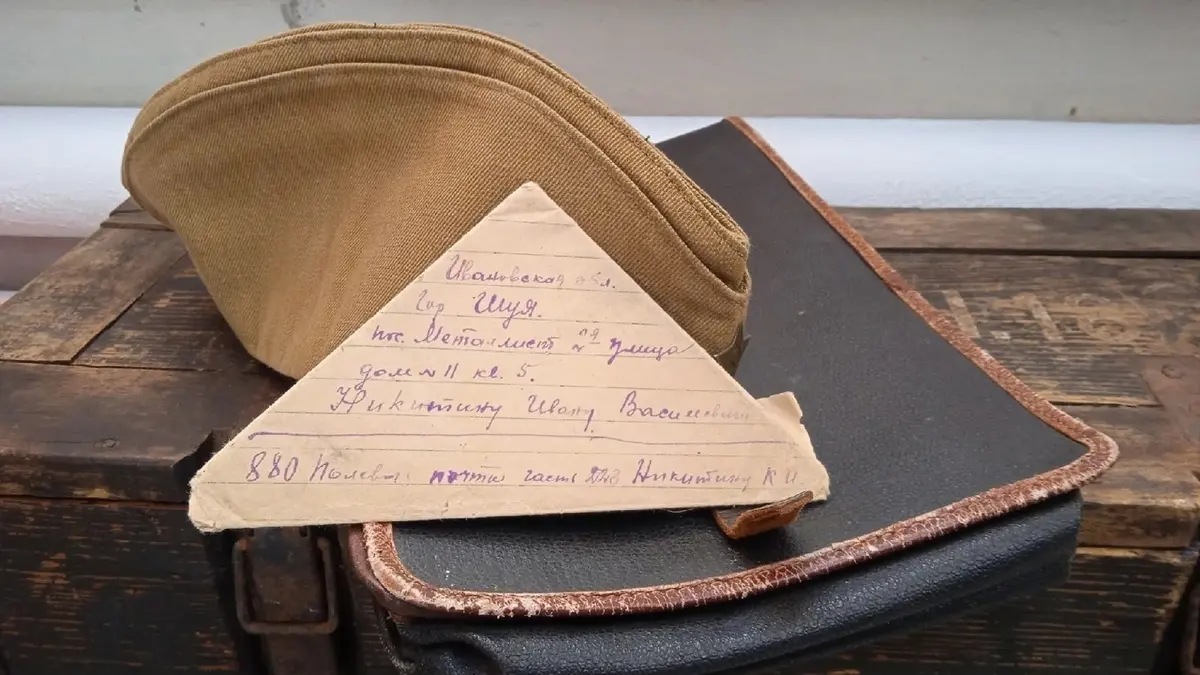 Ивановская обл.
Гор Шуя.
пос. Металлист 2я улица
дом № 11 кв. 5.
Никитину Ивану Васильевичу
880 Полевая почта часть Никитину К И